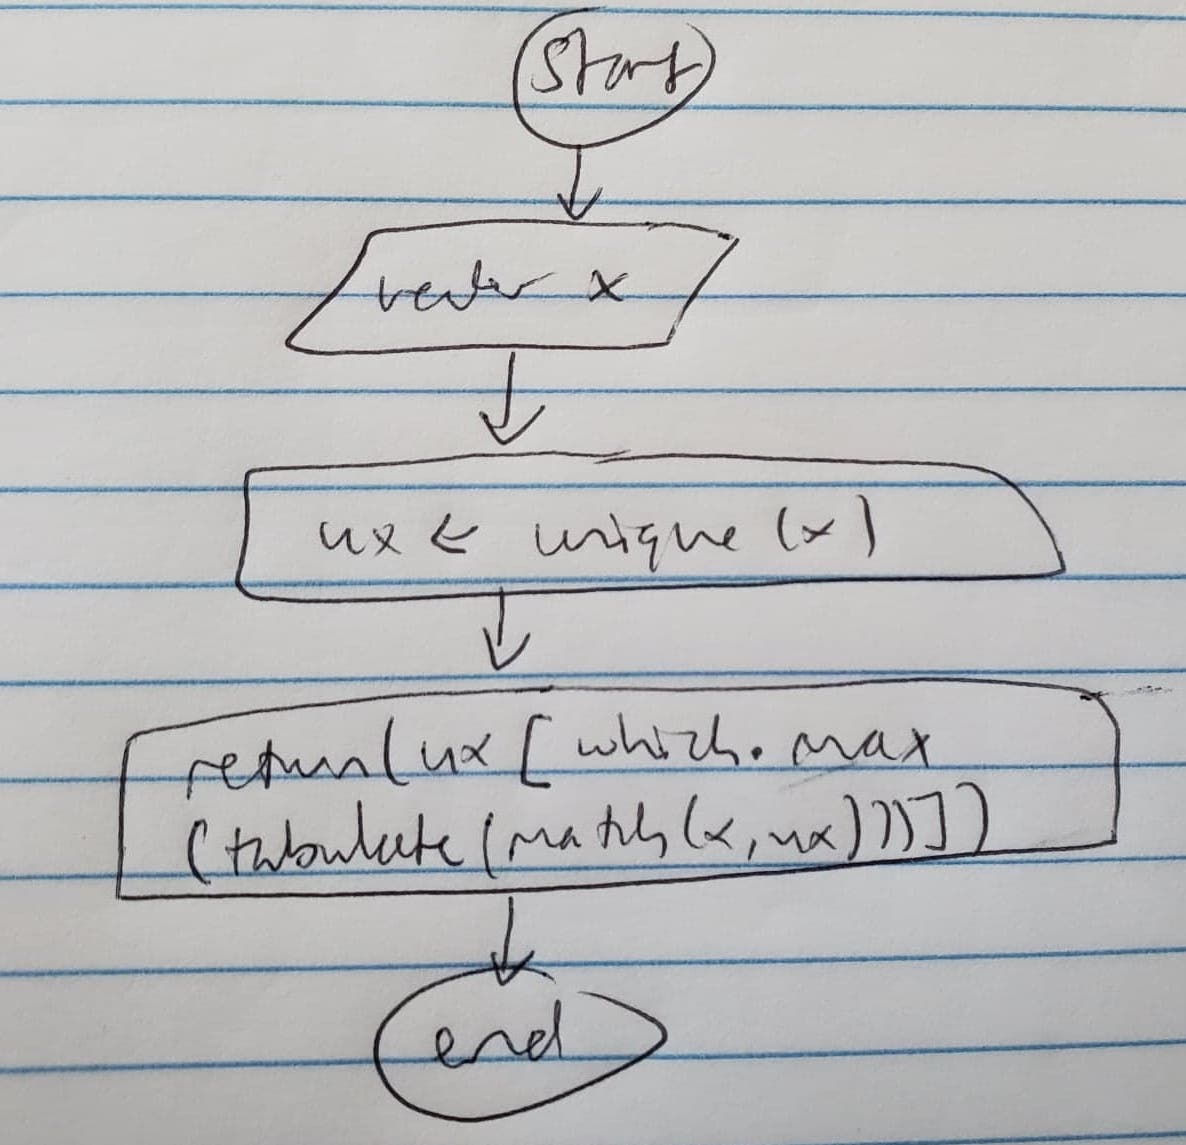 Start
vector x
ux ← unique (x)
return(ux [ which.max
(tabulate (match(x,ux)))])
end